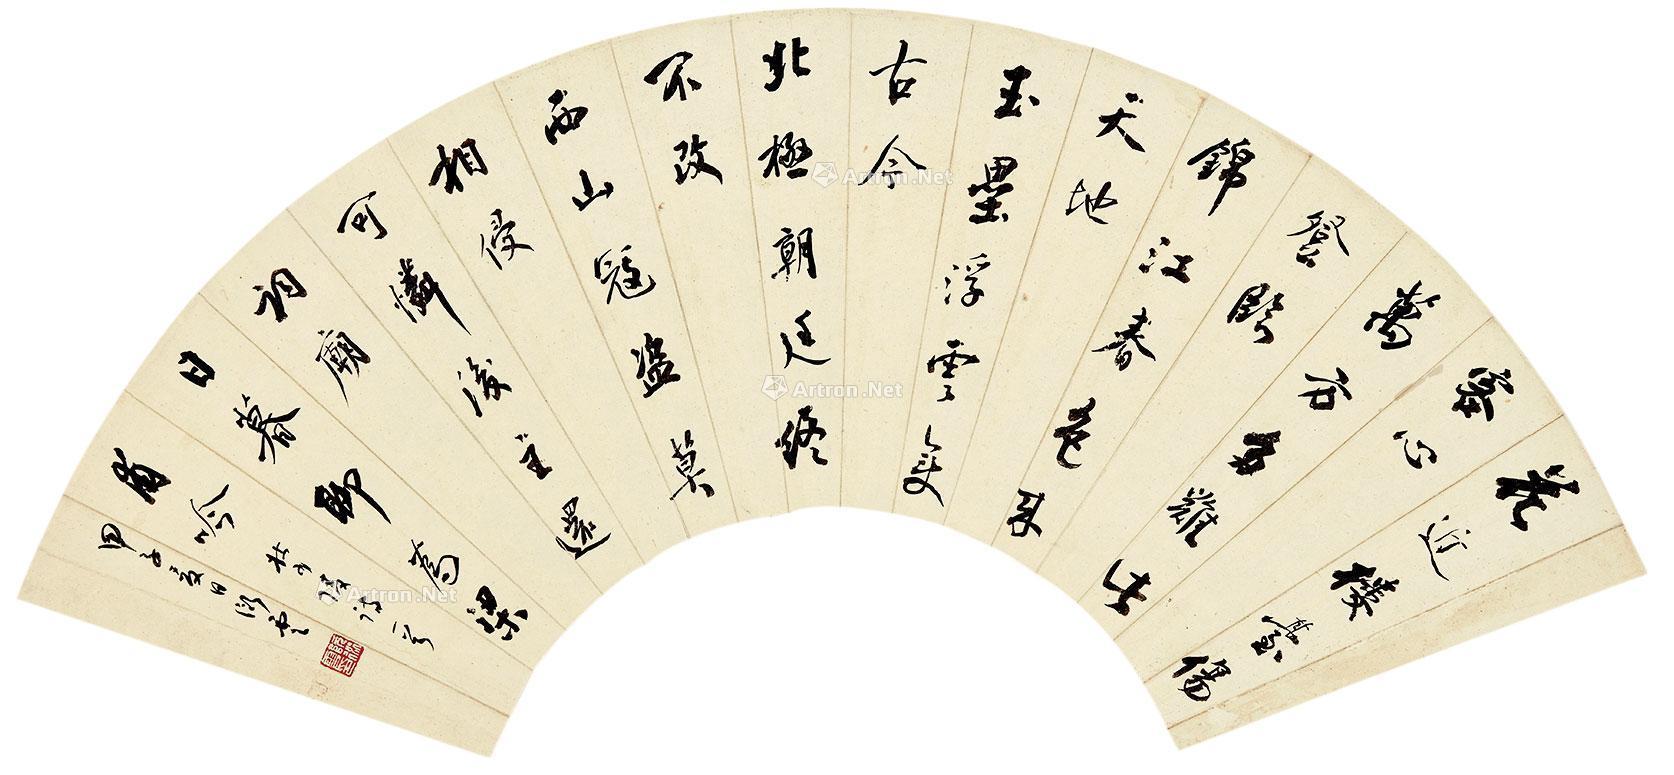 花近樓臺傷
客心
萬方多難此
登臨
錦江春色來
天地
玉壘浮雲變
古今
北極朝廷終
不改
西山寇盜莫
相侵
可憐後主還
祠廟
日暮聊為梁
甫吟
杜少陵詩一首
甲子夏日
Artron.Net
Artron.Net
Artron.Net